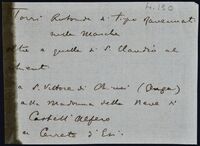 4.150
Torri Rotonde di tipo Ravennate
nelle Marche
Oltre a quella di S. Claudio al
Chienti
a S. Vittore di Chiusi (Genga)
alla Madonna della Neve di
Castell'Alfero
a Cerreto d'Esi: